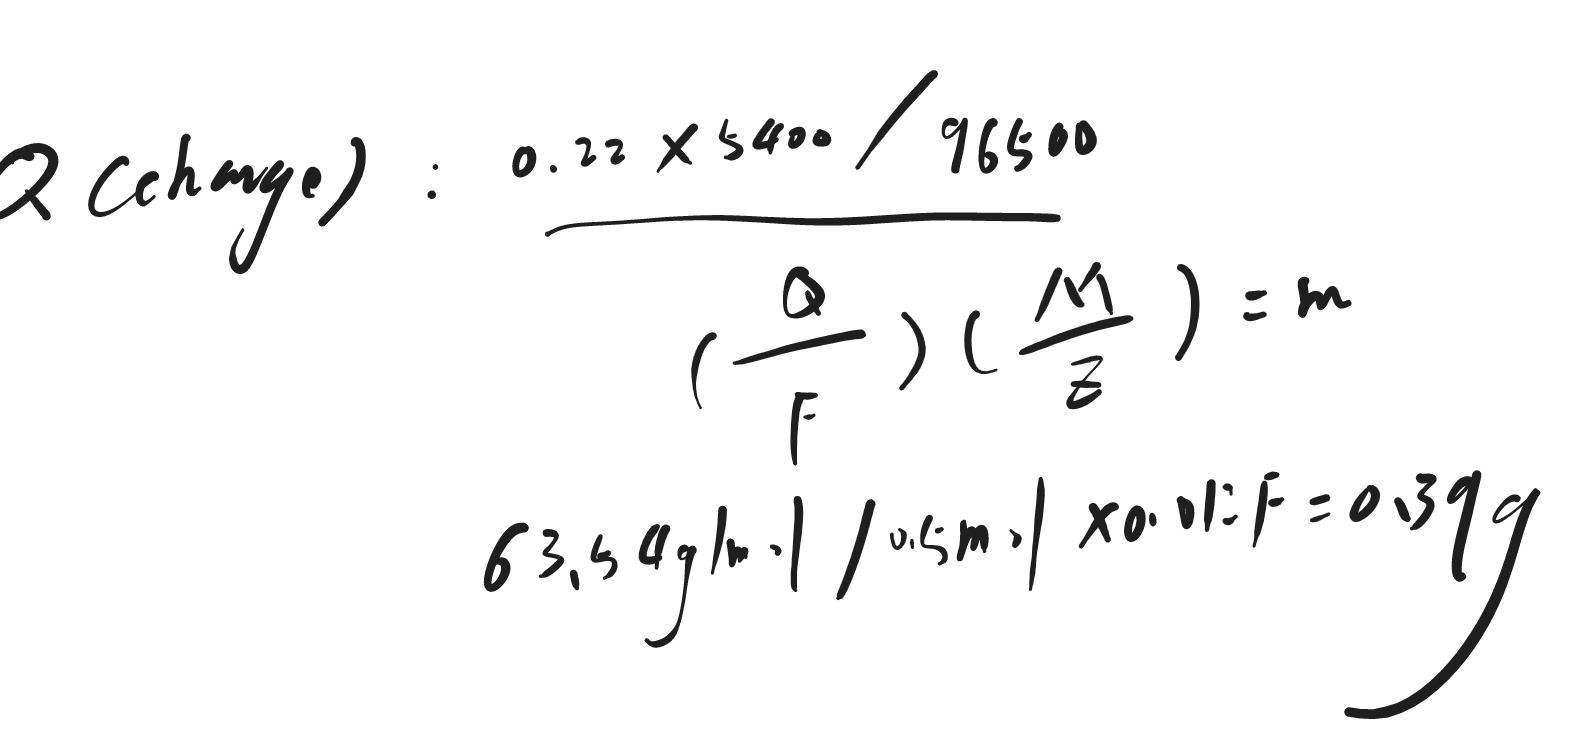 Q (charge) : 0.22 × 5400 / 96500
(Q/F)(M/Z) = m
63.54g/mol / 0.5mol × 0.01 F = 0.39g